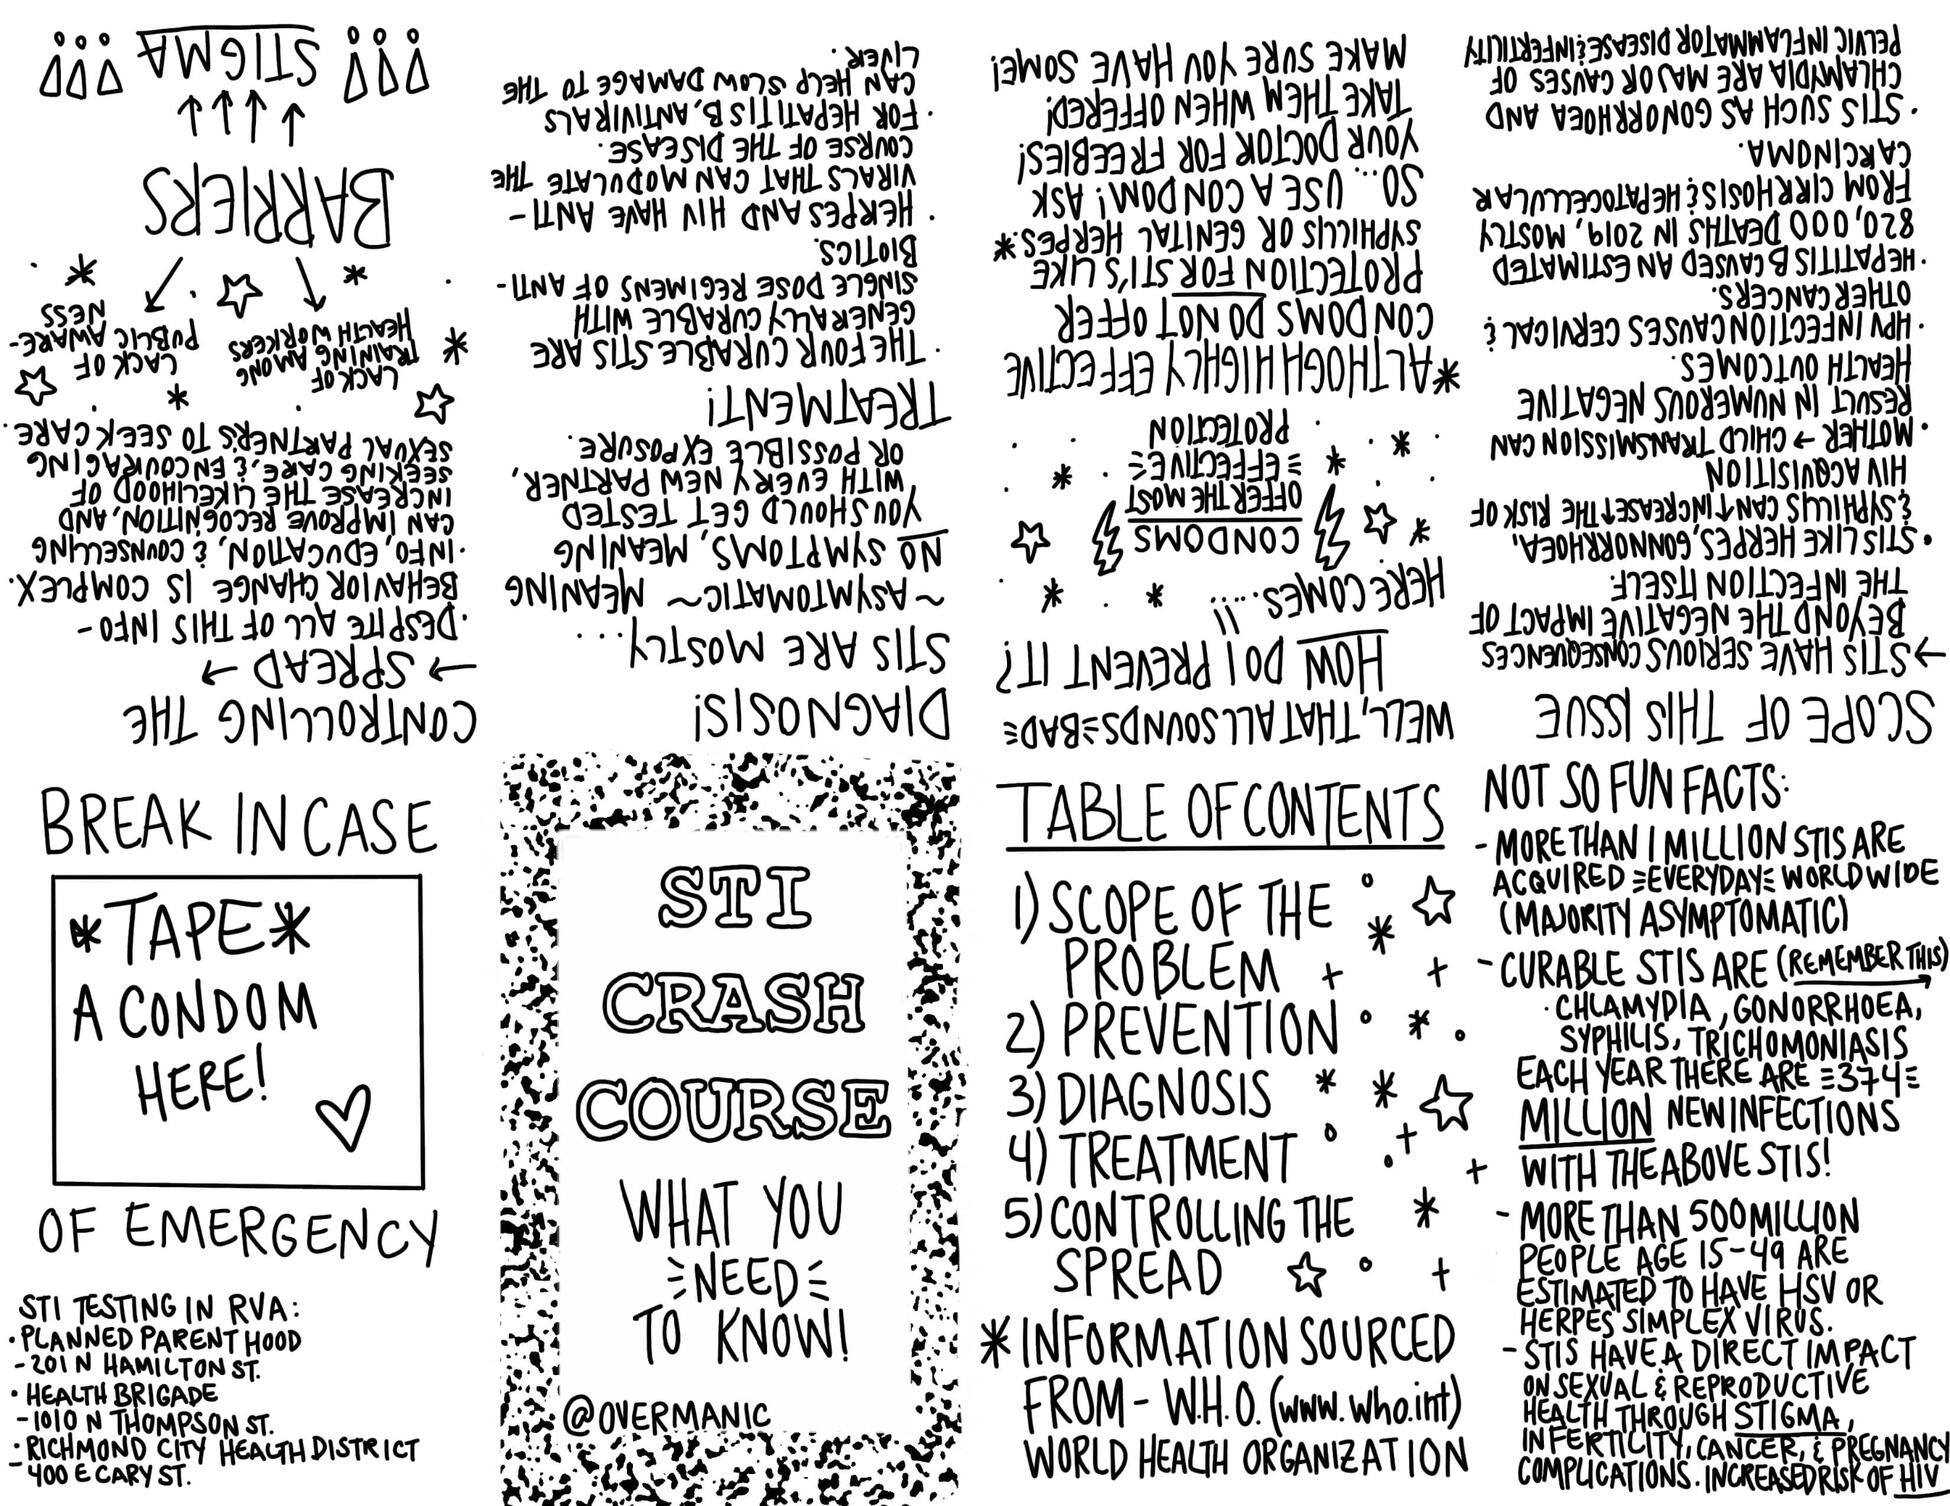 STI
CRASH
COURSE
WHAT YOU
NEED
TO KNOW!
@OVERMANIC
TABLE OF CONTENTS
1) SCOPE OF THE
PROBLEM
2) PREVENTION
3) DIAGNOSIS
4) TREATMENT
5) CONTROLLING THE
SPREAD
* INFORMATION SOURCED
FROM - W.H.O. (www.who.int)
WORLD HEALTH ORGANIZATION
NOT SO FUN FACTS:
- MORE THAN 1 MILLION STIS ARE
ACQUIRED EVERYDAY WORLDWIDE
(MAJORITY ASYMPTOMATIC)
- CURABLE STIS ARE (REMEMBER THIS)
· CHLAMYDIA, GONORRHOEA,
SYPHILIS, TRICHOMONIASIS
EACH YEAR THERE ARE 374
MILLION NEW INFECTIONS
WITH THE ABOVE STIS!
- MORE THAN 500 MILLION
PEOPLE AGE 15-49 ARE
ESTIMATED TO HAVE HSV OR
HERPES SIMPLEX VIRUS.
- STIS HAVE A DIRECT IMPACT
ON SEXUAL & REPRODUCTIVE
HEALTH THROUGH STIGMA,
INFERTILITY, CANCER, & PREGNANCY
COMPLICATIONS. INCREASED RISK OF HIV
SCOPE OF THIS ISSUE
→ STIS HAVE SERIOUS CONSEQUENCES
BEYOND THE NEGATIVE IMPACT OF
THE INFECTION ITSELF
• STIS LIKE HERPES, GONNORRHOEA,
& SYPHILLIS CAN ↑INCREASE↑ THE RISK OF
HIV ACQUISITION
• MOTHER → CHILD TRANSMISSION CAN
RESULT IN NUMEROUS NEGATIVE
HEALTH OUTCOMES
• HPV INFECTION CAUSES CERVICAL &
OTHER CANCERS.
• HEPATITIS B CAUSED AN ESTIMATED
820,000 DEATHS IN 2019, MOSTLY
FROM CIRRHOSIS & HEPATOCELLULAR
CARCINOMA.
• STIS SUCH AS GONORRHOEA AND
CHLAMYDIA ARE MAJOR CAUSES OF
PELVIC INFLAMMATOR DISEASE & INFERTILITY
WELL, THAT ALL SOUNDS BAD
HOW DO I PREVENT IT?
HERE COMES.....!!
CONDOMS
OFFER THE MOST
EFFECTIVE
PROTECTION
*ALTHOGH HIGHLY EFFECTIVE
CONDOMS DO NOT OFFER
PROTECTION FOR STI'S LIKE
SYPHILLIS OR GENITAL HERPES.*
SO... USE A CONDOM! ASK
YOUR DOCTOR FOR FREEBIES!
TAKE THEM WHEN OFFERED!
MAKE SURE YOU HAVE SOME!
DIAGNOSIS!
STIS ARE MOSTLY...
~ASYMPTOMATIC~ MEANING
NO SYMPTOMS, MEANING
YOU SHOULD GET TESTED
WITH EVERY NEW PARTNER,
OR POSSIBLE EXPOSURE.
TREATMENT!
• THE FOUR CURABLE STIS ARE
GENERALLY CURABLE WITH
SINGLE DOSE REGIMENS OF ANTI-
BIOTICS.
• HERPES AND HIV HAVE ANTI-
VIRALS THAT CAN MODULATE THE
COURSE OF THE DISEASE.
• FOR HEPATITIS B, ANTIVIRALS
CAN HELP SLOW DAMAGE TO THE
LIVER.
CONTROLLING THE
→ SPREAD →
• DESPITE ALL OF THIS INFO-
BEHAVIOR CHANGE IS COMPLEX.
• INFO, EDUCATION, & COUNSELLING
CAN IMPROVE RECOGNITION, AND
INCREASE THE LIKELIHOOD OF
SEEKING CARE, & ENCOURAGING
SEXUAL PARTNERS TO SEEK CARE.
LACK OF
TRAINING AMONG
HEALTH WORKERS
LACK OF
PUBLIC AWARE-
NESS
BARRIERS
STIGMA
BREAK IN CASE
*TAPE*
A CONDOM
HERE!
OF EMERGENCY
STI TESTING IN RVA:
• PLANNED PARENTHOOD
- 201 N HAMILTON ST.
• HEALTH BRIGADE
- 1010 N THOMPSON ST.
• RICHMOND CITY HEALTH DISTRICT
- 400 E CARY ST.